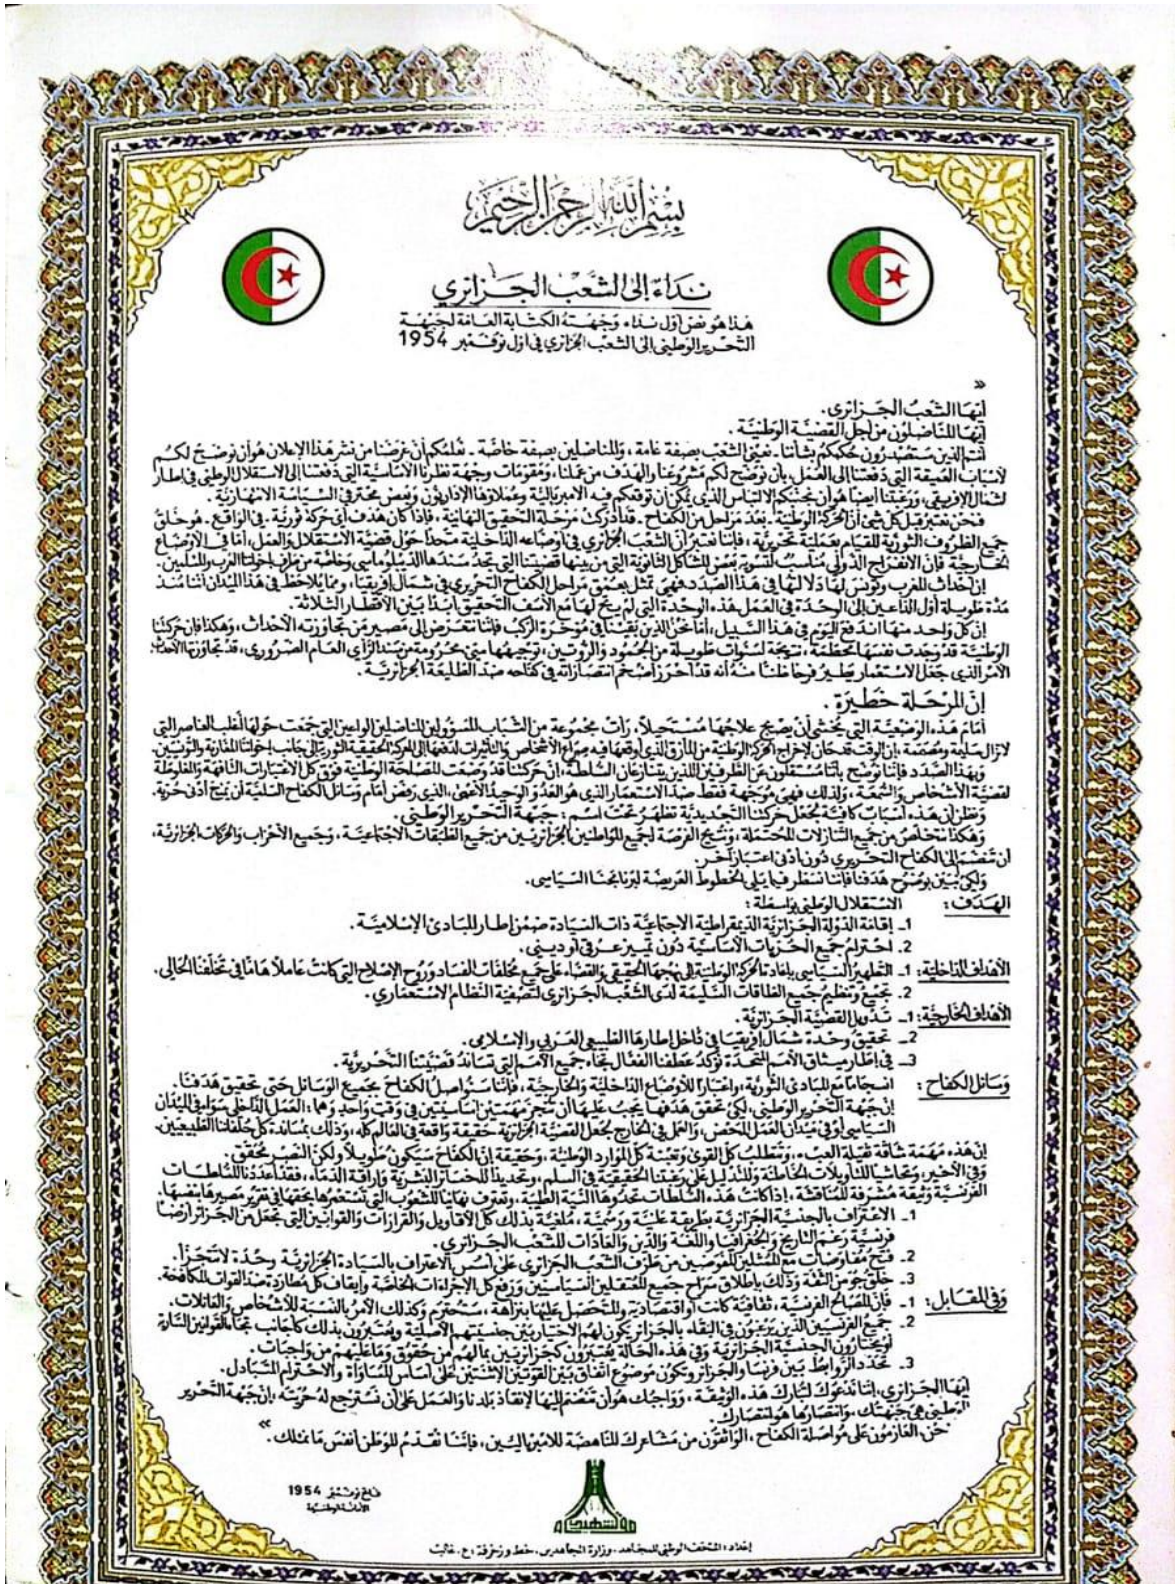 بسم الله الرحمن الرحيم
نداء إلى الشعب الجزائري
هذا هو نص أول نداء وجهته الكتابة العامة لجبهة
التحرير الوطني إلى الشعب الجزائري في أول نوفمبر 1954
»
أيها الشعب الجزائري،
أيها المناضلون من أجل القضية الوطنية،
أنتم الذين ستصدرون حكمكم بشأننا ـ نعني الشعب بصفة عامة، والمناضلين بصفة خاصة ـ نعلمكم أن غرضنا من نشر هذا الإعلان هو أن نوضح لكم
لأسباب العميقة التي دفعتنا إلى العمل، بأن نوضح لكم مشروعنا والهدف من عملنا، ومقومات وجهة نظرنا الأساسية التي دفعتنا إلى الاستقلال الوطني في إطار
لشمال الإفريقي، ورغبتنا أيضا هو أن نجنبكم الالتباس الذي يمكن أن توقعكم فيه الامبريالية وعملاؤها الإداريون وبعض محترفي السياسة الانتهازية.
فنحن نعتبر قبل كل شيء أن الحركة الوطنية ـ بعد مراحل من الكفاح ـ قد أدركت مرحلة التحقيق النهائية، فإذا كان هدف أي حركة ثورية ـ في الواقع ـ هو خلق
جميع الظروف الثورية للقيام بعملية تحريرية، فإننا نعتبر أن الشعب الجزائري في أوضاعه الداخلية متحدا حول قضية الاستقلال والعمل، أما في الأوضاع
الخارجية فإن الانفراج الدولي مناسب لتسوية بعض المشاكل الثانوية التي من بينها قضيتنا التي تجد سندها الديبلوماسي وخاصة من طرف إخواننا العرب والمسلمين.
إن أحداث المغرب وتونس لها دلالتها في هذا الصدد فهي تمثل بعمق مراحل الكفاح التحريري في شمال إفريقيا، ومما يلاحظ في هذا الميدان أننا منذ
مدة طويلة أول الداعين إلى الوحدة في العمل هذه الوحدة التي لم يتح لها مع الأسف التحقيق أبدا بين الأقطار الثلاثة.
إن كل واحد منها اندفع اليوم في هذا السبيل، أما نحن الذين بقينا في مؤخرة الركب فإننا نتعرض إلى مصير من تجاوزته الأحداث، وهكذا فإن حركتنا
الوطنية قد وجدت نفسها محطمة، نتيجة لسنوات طويلة من الجمود والروتين، توجيهها سيئ محرومة من سند الرأي العام الضروري، قد تجاوزتها الأحداث،
الأمر الذي جعل الاستعمار يطير فرحا ظنا منه أنه قد أحرز أضخم انتصاراته في كفاحه ضد الطليعة الجزائرية.
إن المرحلة خطيرة.
أمام هذه الوضعية التي يخشى أن يصبح علاجها مستحيلا، رأت مجموعة من الشباب المسؤولين المناضلين الواعين التي جمعت حولها أغلب العناصر التي
لا تزال سليمة ومصممة، إن الوقت قد حان لإخراج الحركة الوطنية من المأزق الذي أوقعها فيه صراع الأشخاص والتأثيرات لدفعها إلى المعركة الحقيقية الثورية إلى جانب إخواننا المغاربة والتونسيين.
وبهذا الصدد فإننا نوضح بأننا مستقلون عن الطرفين اللذين يتنازعان السلطة، إن حركتنا قد وضعت المصلحة الوطنية فوق كل الاعتبارات التافهة والمغلوطة
لقضية الأشخاص والسمعة، ولذلك فهي موجهة فقط ضد الاستعمار الذي هو العدو الوحيد الأعمى، الذي رفض أمام وسائل الكفاح السلمية أن يمنح أدنى حرية.
ونظن أن هذه أسباب كافية لجعل حركتنا التجديدية تظهر تحت اسم: جبهة التحرير الوطني.
وهكذا نتخلص من جميع التنازلات المحتملة، ونتيح الفرصة لجميع المواطنين الجزائريين من جميع الطبقات الاجتماعية، وجميع الأحزاب والحركات الجزائرية،
أن تنضم إلى الكفاح التحرري دون أدنى اعتبار آخر.
ولكي نبين بوضوح هدفنا فإننا نسطر فيما يلي الخطوط العريضة لبرنامجنا السياسي.
الهدف: الاستقلال الوطني بواسطة:
1ـ إقامة الدولة الجزائرية الديمقراطية الاجتماعية ذات السيادة ضمن إطار المبادئ الإسلامية.
2ـ احترام جميع الحريات الأساسية دون تمييز عرقي أو ديني.
الأهداف الداخلية: 1ـ التطهير السياسي بإعادة الحركة الوطنية إلى نهجها الحقيقي والقضاء على جميع مخلفات الفساد وروح الإصلاح التي كانت عاملا هاما في تخلفنا الحالي.
2ـ تجميع وتنظيم جميع الطاقات السليمة لدى الشعب الجزائري لتصفية النظام الاستعماري.
الأهداف الخارجية: 1ـ تدويل القضية الجزائرية.
2ـ تحقيق وحدة شمال إفريقيا في داخل إطارها الطبيعي العربي والإسلامي.
3ـ في إطار ميثاق الأمم المتحدة نؤكد عطفنا الفعال تجاه جميع الأمم التي تساند قضيتنا التحريرية.
وسائل الكفاح: انسجاما مع المبادئ الثورية، واعتبارا للأوضاع الداخلية والخارجية، فإننا سنواصل الكفاح بجميع الوسائل حتى تحقيق هدفنا.
إن جبهة التحرير الوطني، لكي تحقق هدفها يجب عليها أن تنجز مهمتين أساسيتين في وقت واحد وهما: العمل الداخلي سواء في الميدان
السياسي أو في ميدان العمل المحض، والعمل في الخارج لجعل القضية الجزائرية حقيقة واقعة في العالم كله، وذلك بمساندة كل حلفائنا الطبيعيين.
إن هذه مهمة شاقة ثقيلة العبء، وتتطلب كل القوى وتعبئة كل الموارد الوطنية، وحقيقة إن الكفاح سيكون طويلا ولكن النصر محقق.
وفي الأخير، وتحاشيا للتأويلات الخاطئة وللتدليل على رغبتنا الحقيقية في السلم، وتحديدا للخسائر البشرية وإراقة الدماء، فقد أعددنا للسلطات
الفرنسية وثيقة مشرفة للمناقشة، إذا كانت هذه السلطات تحدوها النية الطيبة، وتعترف نهائيا للشعوب التي تستعمرها بحقها في تقرير مصيرها بنفسها.
1ـ الاعتراف بالجنسية الجزائرية بطريقة علنية ورسمية، ملغية بذلك كل الأقاويل والقرارات والقوانين التي تجعل من الجزائر أرضا
فرنسية رغم التاريخ والجغرافيا واللغة والدين والعادات للشعب الجزائري.
2ـ فتح مفاوضات مع الممثلين المفوضين من طرف الشعب الجزائري على أسس الاعتراف بالسيادة الجزائرية وحدة لا تتجزأ.
3ـ خلق جو من الثقة وذلك بإطلاق سراح جميع المعتقلين السياسيين ورفع كل الإجراءات الخاصة وإيقاف كل مطاردة ضد القوات المكافحة.
وفي المقابل: 1ـ فإن المصالح الفرنسية، ثقافية كانت أو اقتصادية والمتحصل عليها بنزاهة، ستحترم وكذلك الأمر بالنسبة للأشخاص والعائلات.
2ـ جميع الفرنسيين الذين يرغبون في البقاء بالجزائر يكون لهم الاختيار بين جنسيتهم الأصلية ويعتبرون بذلك كأجانب تجاه القوانين السارية
أو يختارون الجنسية الجزائرية وفي هذه الحالة يعتبرون كجزائريين بما لهم من حقوق وما عليهم من واجبات.
3ـ تحدد الروابط بين فرنسا والجزائر وتكون موضوع اتفاق بين القوتين الاثنتين على أساس المساواة والاحترام المتبادل.
أيها الجزائري، إننا ندعوك لتبارك هذه الوثيقة، وواجبك هو أن تنضم إليها لإنقاذ بلدنا والعمل على أن نسترجع له حريته، إن جبهة التحرير
الوطني هي جبهتك، وانتصارها هو انتصارك.
نحن العازمون على مواصلة الكفاح، الواثقون من مشاعرك المناهضة للامبرياليين، فإننا نقدم للوطن أنفس ما نملك. «
فاتح نوفمبر 1954
الأمانة الوطنية
إعداد: المتحف الوطني للمجاهد ـ وزارة المجاهدين، خط وزخرفة: ع. غالب